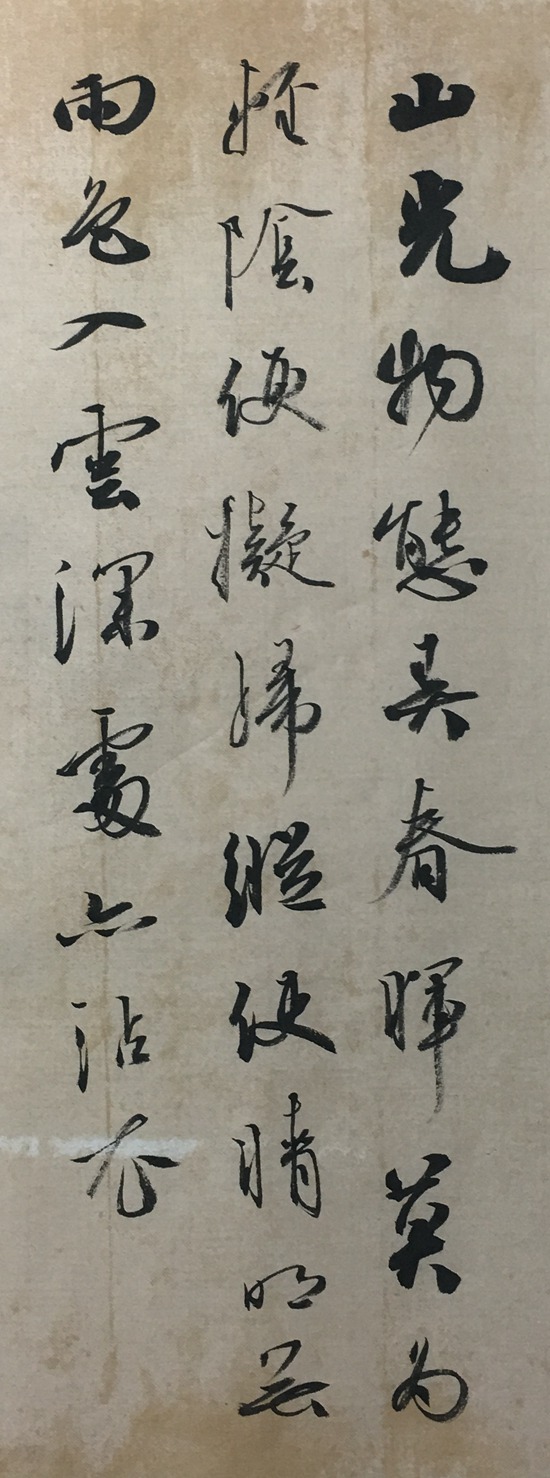 山光物態弄春暉莫為
輕陰便擬歸縱使晴明無
雨色入雲深處亦沾衣